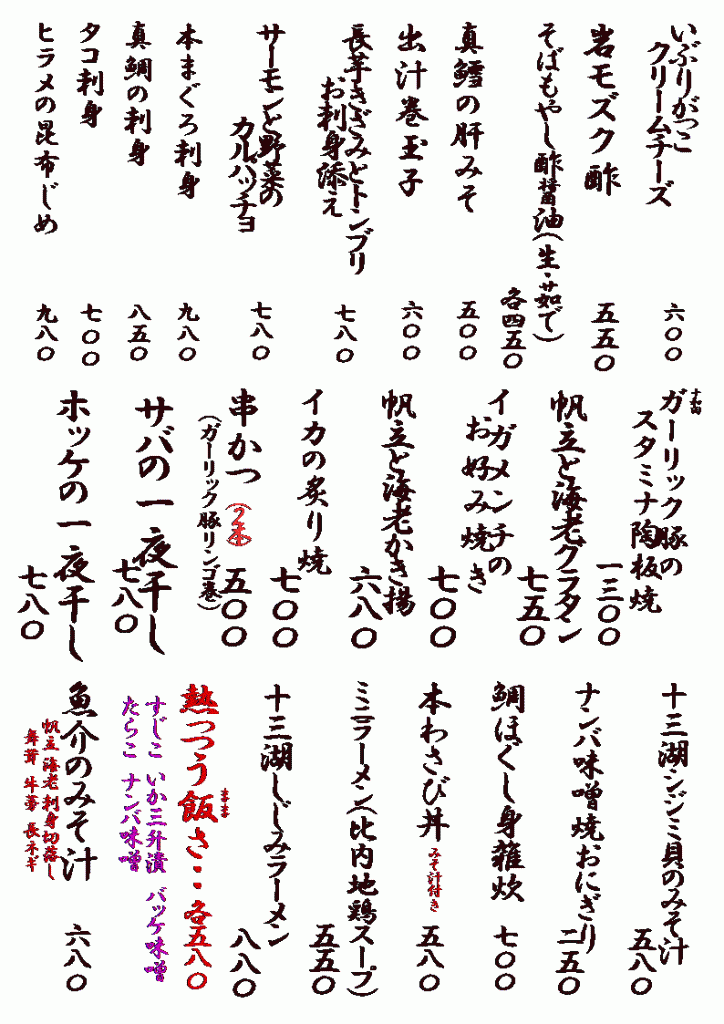 いぶりがっこ
クリームチーズ
六〇〇
岩モズク酢
五五〇
そばもやし酢醤油(生・茹で)
各四五〇
真鱈の肝みそ
五〇〇
出汁巻玉子
六〇〇
長芋きざみとトンブリ
お刺身添え
七八〇
サーモンと野菜の
カルパッチョ
七八〇
本まぐろ刺身
九八〇
真鯛の刺身
八五〇
タコ刺身
七〇〇
ヒラメの昆布じめ
九八〇
ガーリック豚の
スタミナ陶板焼
一三〇〇
帆立と海老グラタン
七五〇
イガメンチの
お好み焼き
七〇〇
帆立と海老かき揚
六八〇
イカの炙り焼
七〇〇
串かつ
(ガーリック豚リンゴ巻)
五〇〇
サバの一夜干し
七八〇
ホッケの一夜干し
七八〇
十三湖シジミ貝のみそ汁
五八〇
ナンバ味噌焼おにぎり
二五〇
鯛ほぐし身雑炊
七〇〇
本わさび丼
みそ汁付き
五八〇
ミニラーメン(比内地鶏スープ)
五五〇
十三湖しじみラーメン
八八〇
熱っつう飯さ・・各五八〇
まま
すじこ いか三升漬 バッケ味噌
たらこ ナンバ味噌
魚介のみそ汁
帆立 海老 刺身切落し
舞茸 牛蒡 長ネギ
六八〇